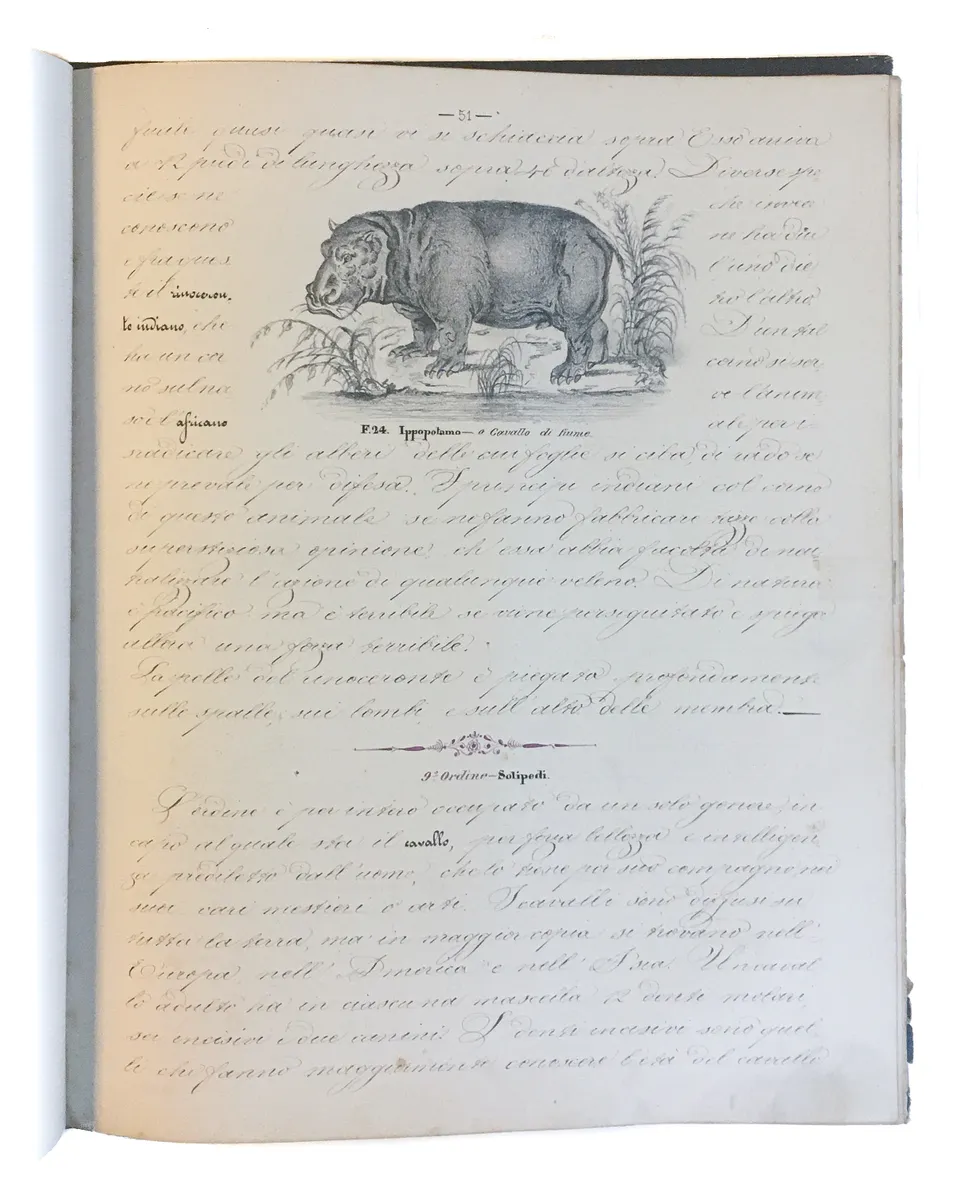 — 51 —
fucile quasi quasi vi si schiaccia sopra Esso arriva
a 12 piedi di lunghezza sopra d'altezza. Diverse spe
cie se ne
conoscono
e fra ques
ti il rinoceron-
te indiano, che
ha un cor
no sul na
so e l'africano
che invece
ne ha due
l'uno die
tro l'altro
D'un tal
corno si ser
ve l'anim
ale per i-
F. 24. Ippopotamo — o Cavallo di fiume.
sradicare gli alberi delle cui foglie si ciba, di rado se
ne prevale per difesa. I principi indiani col corno
di questo animale se ne fanno fabbricare tazze colla
superstiziosa opinione, ch'essa abbia facoltà di neu
tralizzare l'azione di qualunque veleno. Di natura
è pacifico ma è terribile se viene perseguitato e spiega
allora una forza terribile.
La pelle del rinoceronte è piegata profondamente
sulle spalle, sui lombi, e sull'alto delle membra. —
9.° Ordine — Solipedi.
L'ordine è per intero occupato da un solo genere, in
capo al quale sta il cavallo, per forza bellezza e intelligen
za prediletto dall'uomo, che lo tiene per suo compagno, nei
suoi vari mestieri o arti. I cavalli sono diffusi su
tutta la terra, ma in maggior copia si trovano nell'
Europa, nell' America e nell' Asia. Un caval
lo adulto ha in ciascuna mascella 12 denti molari,
sei incisivi e due canini. I denti incisivi sono quel
li che fanno maggiormente conoscere l'età del cavallo